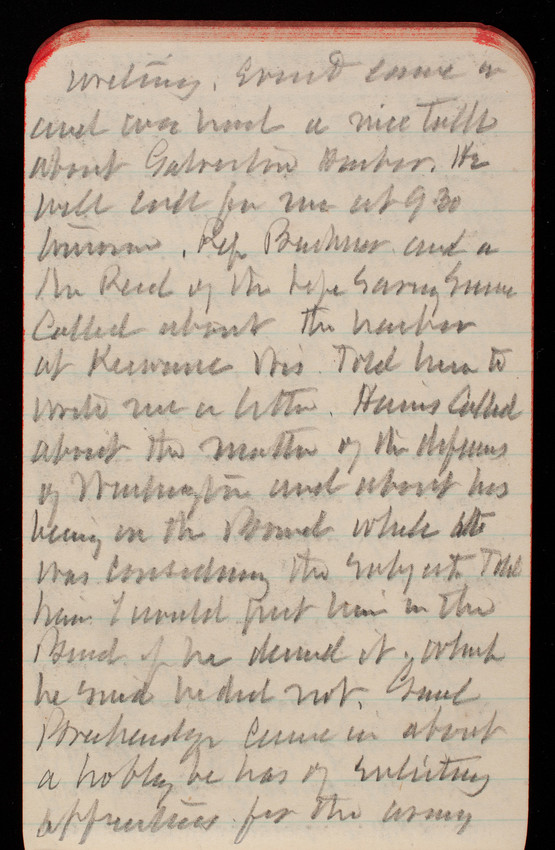 writing. Event came in
and we had a nice talk
about Galveston Harbor. He
will call for me at 9 30
. Rep and a
Mr Reed of the Life Saving
Called about the harbor
at Kewaunee Wis. Told him to
write me a letter. Hains Called
about the matter of the defenses
of Washington and about his
being on the Board while
was considering the subject. Told
him I would put him on the
Board if he desired it, which
he said he did not. Genl
Breckendge came in about
a hobby he has of enlisting
apprentices for the army